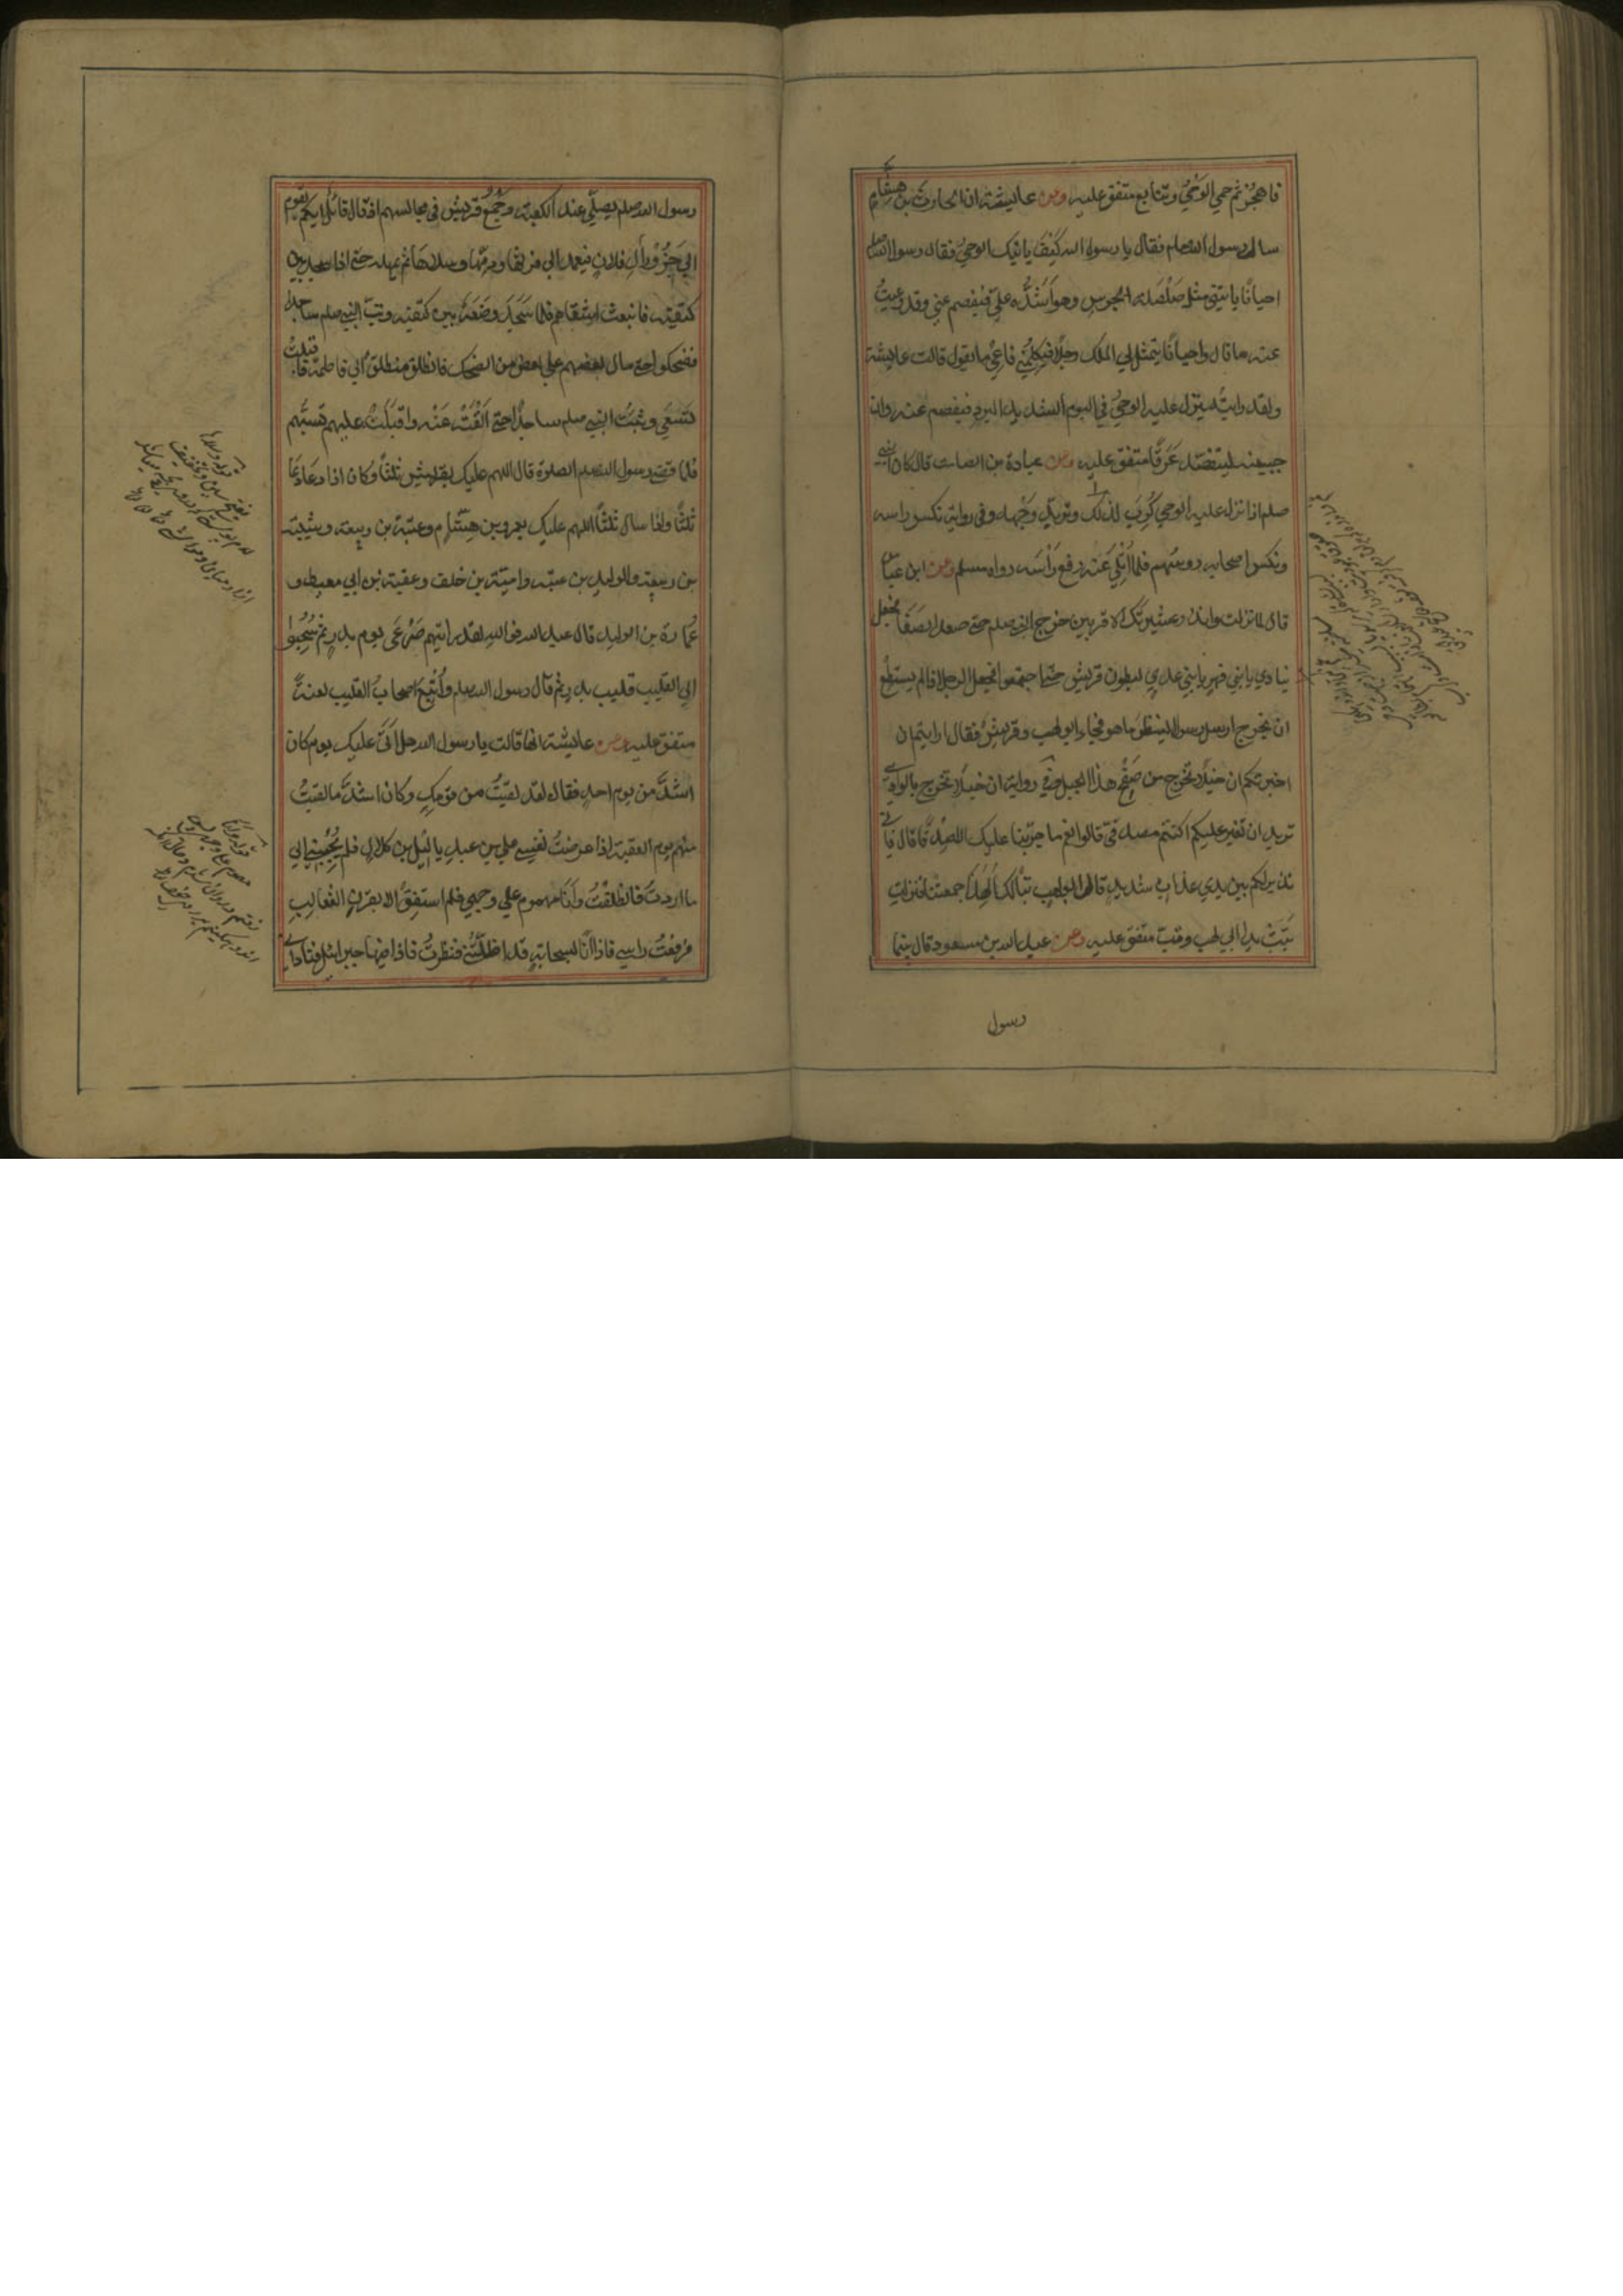 فاهجر ثم حمي الوحي وتتابع متفق عليه وعن عايشة ان الحارث بن هشام
سال رسول الله صلعم فقال يا رسول الله كيف ياتيك الوحي فقال رسول الله صلعم
احيانا ياتيني مثل صلصلة الجرس وهو اشده علي فيفصم عني وقد وعيت
عنه ما قال واحيانا يتمثل لي الملك رجلا فيكلمني فاعي ما يقول قالت عايشة
ولقد رايته ينزل عليه الوحي في اليوم الشديد البرد فيفصم عنه وان
جبينه ليتفصد عرقا متفق عليه وعن عبادة بن الصامت قال كان النبي
صلعم اذا نزل عليه الوحي كرب لذلك وتربد وجهه وفي رواية نكس راسه
ونكس اصحابه رءوسهم فلما اتلي عنه رفع راسه رواه مسلم وعن ابن عباس
قال لما نزلت وانذر عشيرتك الاقربين خرج النبي صلعم حتى صعد الصفا فجعل
ينادي يا بني فهر يا بني عدي لبطون قريش حتى اجتمعوا فجعل الرجل اذا لم يستطع
ان يخرج ارسل رسولا لينظر ما هو فجاء ابو لهب وقريش فقال ارايتم ان
اخبرتكم ان خيلا تخرج من صفح هذا الجبل وفي رواية ان خيلا تخرج بالوادي
تريد ان تغير عليكم اكنتم مصدقي قالوا نعم ما جربنا عليك الا صدقا قال فاني
نذير لكم بين يدي عذاب شديد قال ابو لهب تبا لك الهذا جمعتنا فنزلت
تبت يدا ابي لهب وتب متفق عليه وعن عبد الله بن مسعود قال بينما
رسول
رسول الله صلعم يصلي عند الكعبة وجمع قريش في مجالسهم اذ قال قائل ايكم يقوم
الي جزور ال فلان فيعمد الي فرثها ودمها وسلاها ثم يمهله حتى اذا سجد بين
كتفيه فانبعث اشقاهم فلما سجد وضعه بين كتفيه وثبت النبي صلعم ساجدا
فضحكوا حتى مال بعضهم علي بعض من الضحك فانطلق منطلق الي فاطمة فاقبلت
تسعي وثبت النبي صلعم ساجدا حتى القته عنه واقبلت عليهم تسبهم
فلما قضي رسول الله صلعم الصلوة قال اللهم عليك بقريش ثلثا وكان اذا دعا دعا
ثلثا واذا سال سال ثلثا اللهم عليك بعمرو بن هشام وعتبة بن ربيعة وشيبة
بن ربيعة والوليد بن عتبه وامية بن خلف وعقبة بن ابي معيط و
عمارة بن الوليد قال عبد الله فوالله لقد رايتهم صرعي يوم بدر ثم سحبوا
الي القليب قليب بدر ثم قال رسول الله صلعم واتبع اصحاب القليب لعنة
متفق عليه وعن عايشة انها قالت يا رسول الله هل اتى عليك يوم كان
اشد من يوم احد فقال لقد لقيت من قومك وكان اشد ما لقيت
منهم يوم العقبة اذا عرضت نفسي علي بن عبد ياليل بن كلال فلم يجبني الي
ما اردت فانطلقت وانا مهموم علي وجهي فلم استفق الا بقرن الثعالب
فرفعت راسي فاذا انا بسحابة قد اظلتني فنظرت فاذا فيها جبرائيل فناداني